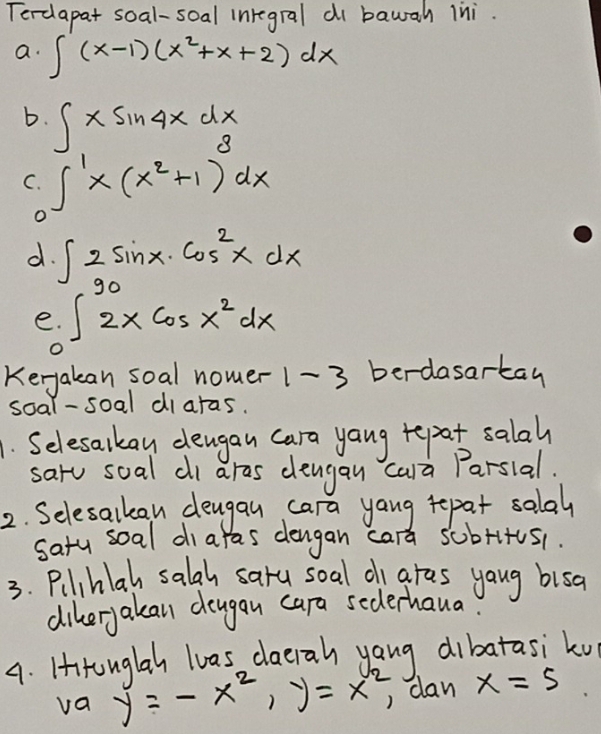 Terdapat soal-soal integral di bawah ini.
a. ∫ (x-1)(x²+x+2) dx
b. ∫ x sin 4x dx
c. ∫₀¹ x (x²+1)⁸ dx
d. ∫ 2 sin x. Cos² x dx
e. ∫₀⁹⁰ 2x Cos x² dx
Kerjakan soal nomer 1 - 3 berdasarkan
soal-soal di atas.
1. Selesaikan dengan cara yang tepat salah
satu soal di atas dengan cara Parsial.
2. Selesaikan dengan cara yang tepat salah
satu soal di atas dengan cara subtitusi.
3. Pilihlah salah satu soal di atas yang bisa
dikerjakan dengan cara sederhana.
4. Hitunglah luas daerah yang dibatasi kur
va y = - x², y = x², dan x = 5.